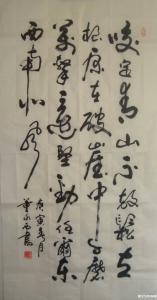 咬定青山不放鬆立
根原在破崖中千磨
萬擊還堅勁任爾東
西南北風
庚寅春月